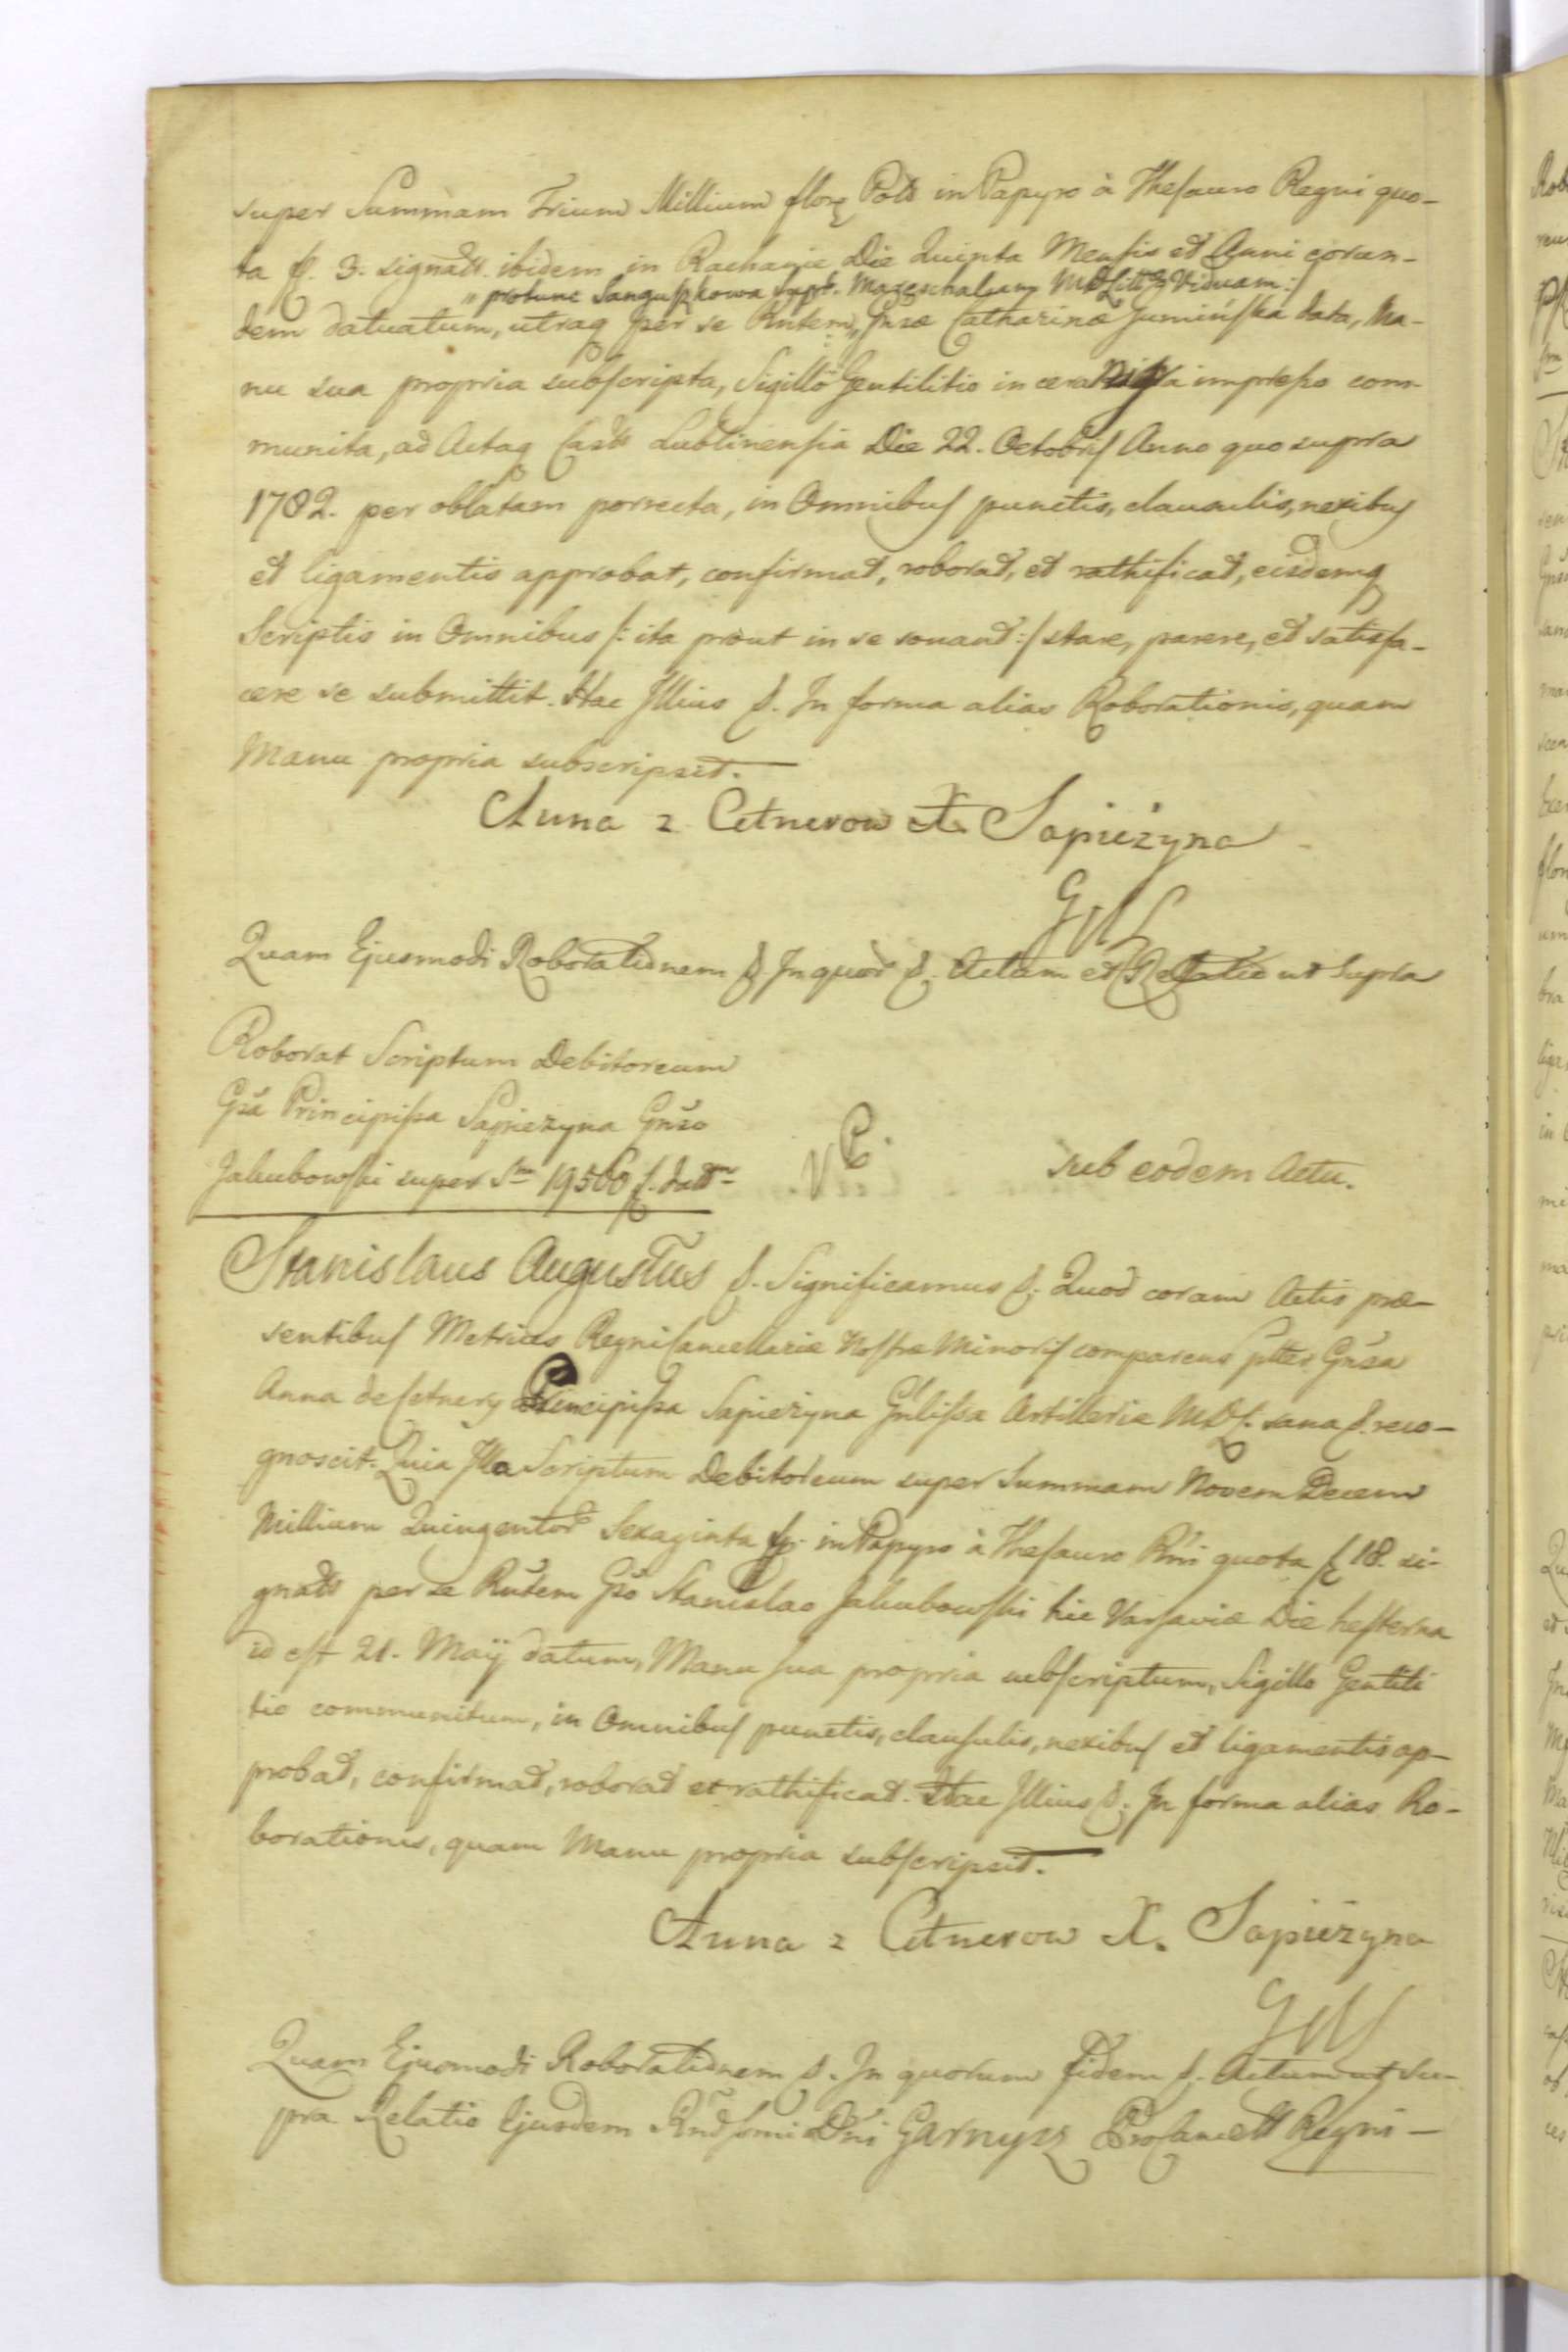 super Summam Trium Millium flor. Polt in Papyro à Thesauro Regni quo-
ta fl. 3. signatt. ibidem in Rachanie Die Quinta Mensis et Anni eorun-
"protunc Sanguszkowa Supr. Mareschalcum MDLitt Viduam:/
dem datuatum, utraq per se Rntem, Gnsæ Catharinæ Jumińska data, Ma-
nu sua propria subscripta, Sigillo Gentilitio in cera impresso com-
munita, ad Actaq Castr Lublinensia Die 22. Octobris Anno quo supra
1782. per oblatam porrecta, in Omnibus punctis, clausulis, nexibus
et ligamentis approbat, confirmat, roborat, et rathificat, eisdemq
Scriptis in Omnibus /: ita prout in se sonant :/ stare, parere, et satisfa-
cere se submittit. Hac Illius p. In forma alias Roborationis, quam
Manu propria subscripsit.
Anna z Cetnerow X. Sapieżyna
GAL
Quam Ejusmodi Roborationem p. In quor p. Actum et Relatio ut supra
Roborat Scriptum Debitoreum
Gsa Principissa Sapiezyna Gnso
Jakubowski super Sm 19560 f. datt
sub eodem Actu.
Stanislaus Augustus p. Significamus p. Quod coram Actis præ-
sentibus Metrices Regni Cancellariæ Nostræ Minoris comparens pltter Gnsa
Anna de Cetnery Principissa Sapiezyna Gnlissa Artilleriæ MDL. sana p. reco-
gnoscit. Quia Illa Scriptum Debitoreum super Summam Novem Decem
Millium Quingentor Sexaginta fp. in Papyro à Thesauro Rni quota f 18. si-
gnatto per se Rntem Gso Stanislao Jakubowski hic Varsaviæ Die hesterna
id est 21. Maÿ datum, Manu sua propria subscriptum, Sigillo Gentili
tio communitum, in Omnibus punctis, clausulis, nexibus et ligamentis ap-
probat, confirmat, roborat et rathificat. Hac Illius p. In forma alias Ro-
borationis, quam Manu propria subscripsit.
Anna z Cetnerow X. Sapieżyna
Quam Ejusmodi Roborationem p. In quorum fidem p. Actum ut su-
pra Relatio Ejusdem Rndssmi Dni Garnysz Procancell Regni —